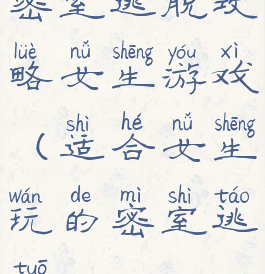 密室逃脱攻
lüè nǚ shēng yóu xì
略女生游戏
shì hé nǚ shēng
（适合女生
wán de mì shì táo
玩的密室逃
tuō